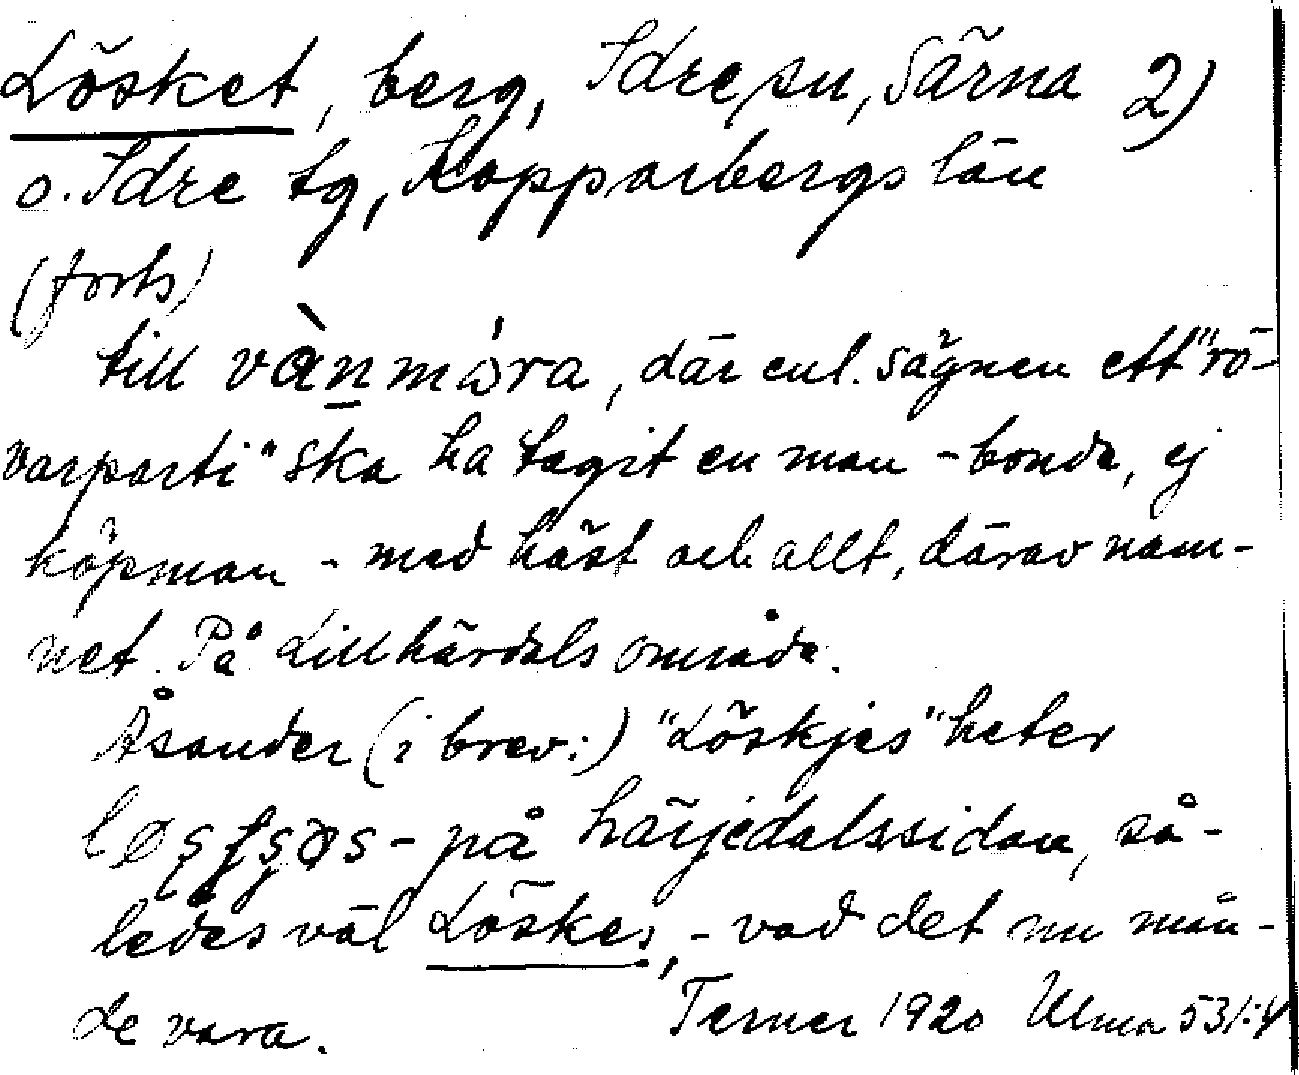 Lösket, berg, Idre sn, Särna 2)
o. Idre tg, Kopparbergs län
(forts)
till vànmóra, där enl. sägnen ett "rö-
varparti" ska ha tagit en man - bonde, ej
köpman - med häst och allt, därav nam-
net. På Lillhärdals område.
Åsander (i brev:) "Löskjes" heter
på härjedalssidan, så-
ledes väl Löskes, - vad det nu mån-
de vara. Terner 1920 Ulma 53/:4